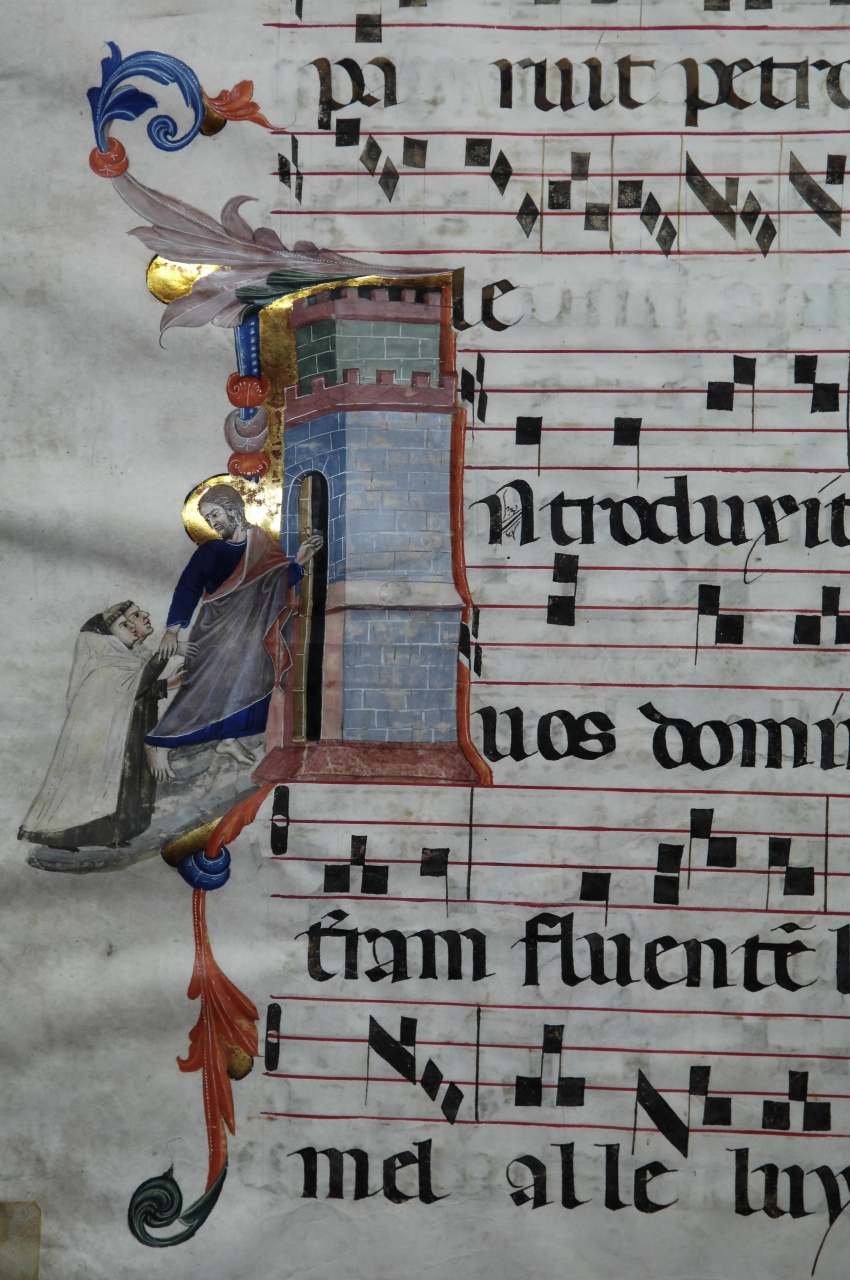 pa ruit petro
le
Ntroduxit
uos domin
t̄ram fluentē l
mel alle luy